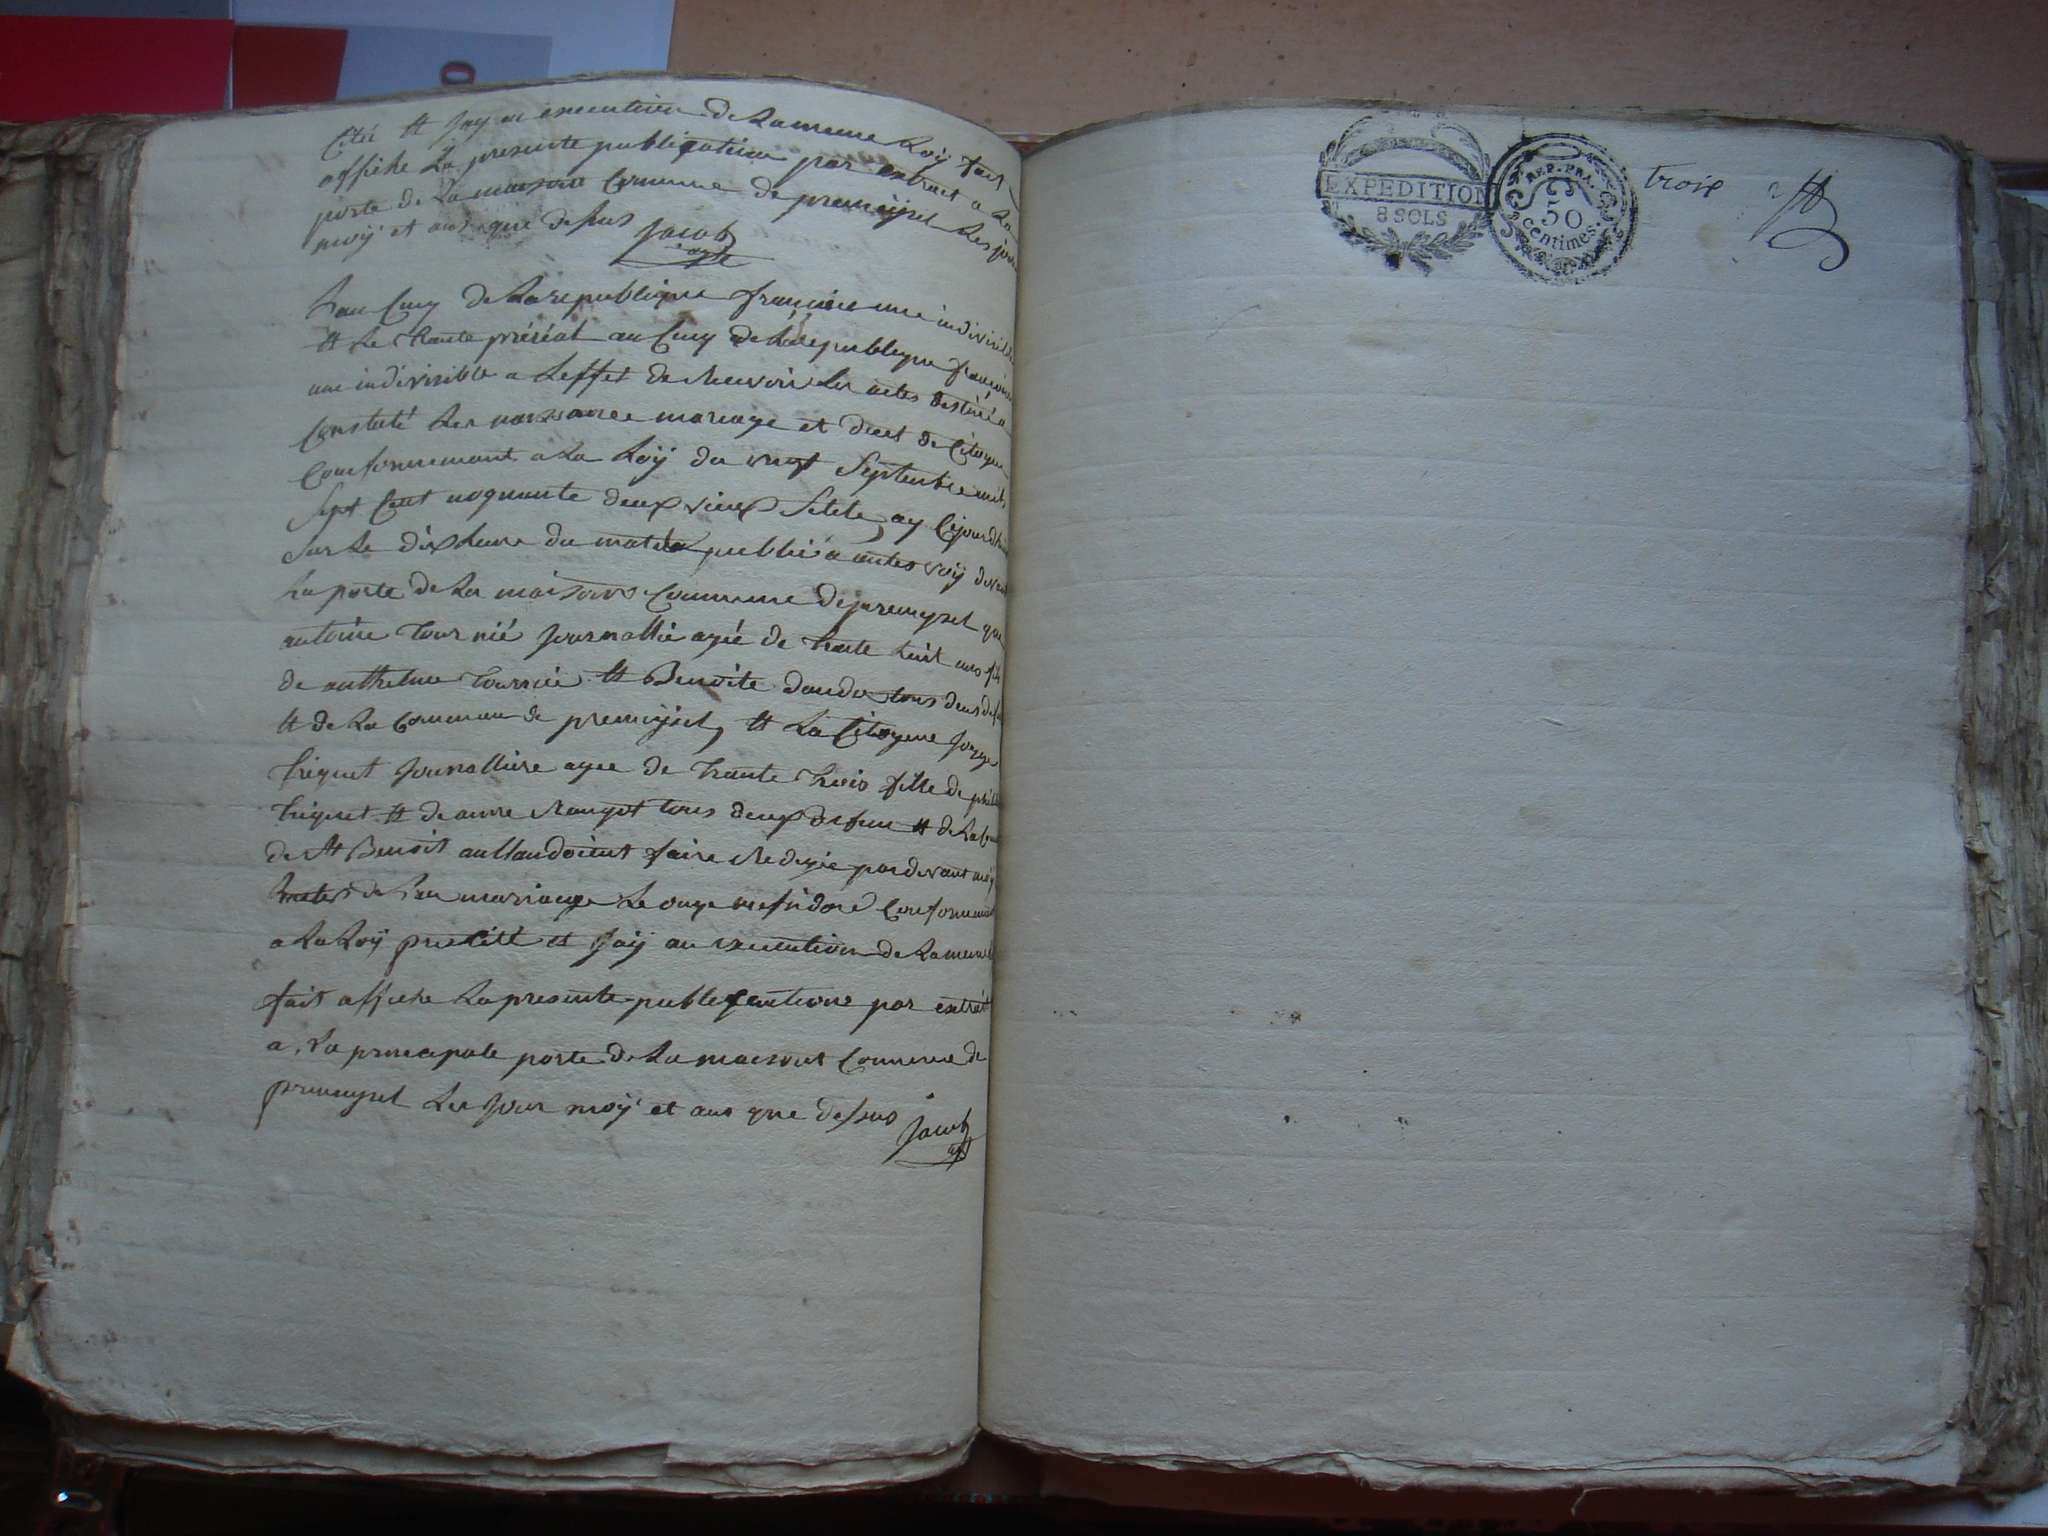 Cité et jay en execution de la meme Loÿ fait
affiche La presente publiquation par extrait a La
porte de La maison Comune de premeÿsel Les jour
moÿ et ant que desus Jacob
agt
L'an Cinq de La republique francoise une indivisible
et Le trante préréal au Cinq de La republique françoise
une indivisible a Leffet de Recevoir Les actes destiné a
Constaté Les naissance mariage et deces de Citoyen
Conformement a La Loÿ du vingt Septembre mil
Sept Cent nonante deux vieux Stile, ay Cejourdhui
Sur Le dix heure du matin publié a autes voÿ devant
La porte de La maison Commune de premeysel que
antoine tournié Journallié agée de trante huit ans fils
de anthelme tournié et Benoite dandu tous deux defun
et de La Commune de premeÿsel, et La Citoyene
triquet Journalliere agee de trante trois fille de
triquet et de anne Maugot tous deux defun et de La Com
de St Benoit antandoient faire Redigée pardevant moÿ
de Leur mariage Le onze mesidore Conformement
a La Loÿ precitté et Jaÿ an execution de La meme
fait affiche La presente publiquations par extrait
a La principale porte de La maison Commune de
premeysel Les Jour moÿ et ans que desus Jacob
agt
EXPEDITION
8 SOLS
REP. FRA.
50
Centimes.
trois